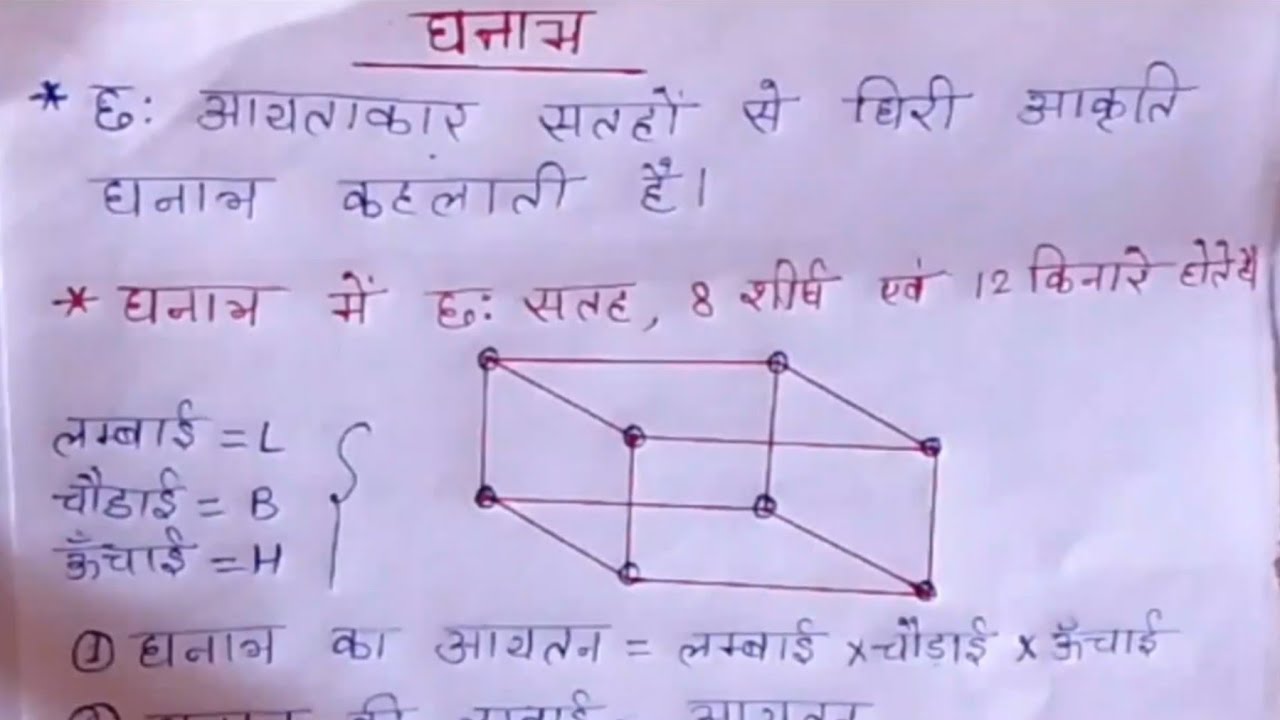 घनाभ
* छः आयताकार सतहों से घिरी आकृति
घनाभ कहलाती है।
* घनाभ में छः सतह, 8 शीर्ष एवं 12 किनारे होते है
लम्बाई = L
चौडाई = B
ऊँचाई = H
① घनाभ का आयतन = लम्बाई × चौड़ाई × ऊँचाई